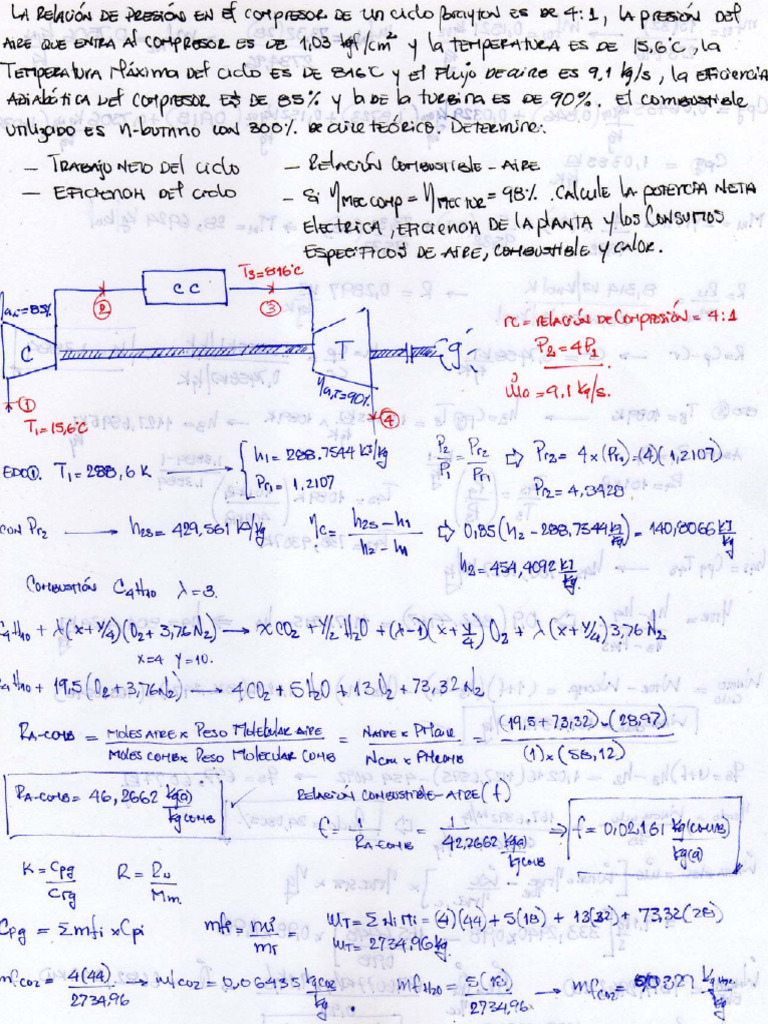 LA RELACIÓN DE PRESIÓN EN El COMPRESOR DE UN CICLO BRAYTON ES DE 4:1, LA PRESIÓN DEL
AIRE QUE ENTRA AL COMPRESOR ES DE 1,03 kgf/cm² y LA TEMPERATURA ES DE 15,6°C, LA
TEMPERATURA MÁXIMA DEL CICLO ES DE 816°C y El FLUJO DE AIRE ES 9,1 kg/s, LA EFICIENCIA
ADIABÁTICA DEL COMPRESOR ES DE 85% y LA DE LA TURBINA ES DE 90%. El COMBUSTIBLE
UTILIZADO ES N-BUTANO CON 300% DE AIRE TEÓRICO. DETERMINE:
– TRABAJO NETO DEL CICLO – RELACIÓN COMBUSTIBLE-AIRE
– EFICIENCIA DEL CICLO – Si ηMEC COMP = ηMEC TUR = 98%. CALCULE LA POTENCIA NETA
ELECTRICA, EFICIENCIA DE LA PLANTA y LOS CONSUMOS
ESPECÍFICOS DE AIRE, COMBUSTIBLE y CALOR.
T3=816°C
CC
2
3
C
T
g
1
4
T1=15,6°C
rc = RELACIÓN DE COMPRESIÓN = 4:1
P2=4P1
ṁa = 9,1 kg/s.
EDO①. T1=288,6 K → h1 = 288.7544 kJ/kg P2/P1 = Pr2/Pr1 ⇒ Pr2 = 4×(Pr1) = (4)(1,2107)
Pr1 = 1,2107 Pr2 = 4,8428
CON Pr2 → h2s = 429,561 kJ/kg ηc = (h2s-h1)/(h2-h1) ⇒ 0,85(h2-288,7544 kJ/kg) = 140,8066 kJ/kg
h2 = 454,4092 kJ/kg.
COMBUSTIÓN C4H10 λ=3.
C4H10 + λ(x+y/4)(O2+3,76N2) → xCO2 + y/2 H2O + (λ-1)(x+y/4)O2 + λ(x+y/4)3,76N2
x=4 y=10.
C4H10 + 19,5(O2+3,76N2) → 4CO2 + 5H2O + 13O2 + 73,32N2
RA-COMB = (MOLES AIRE x PESO MOLECULAR AIRE)/(MOLES COMB x PESO MOLECULAR COMB) = (NAIRE x PMAIRE)/(NCOMB x PMCOMB) = (19,5+73,32)·(28,97)/(1)x(58,12)
RA-COMB = 46,2662 kg(a)/kgCOMB RELACIÓN COMBUSTIBLE-AIRE (f)
f = 1/RA-COMB = 1/42,2662 kg(a)/kgCOMB ⇒ f = 0,02161 kg(COMB)/kg(a)
K = Cpg/Cvg R = Ru/Mm
Cpg = Σmfi x Cpi mfi = mi/mT = MT = ΣNiMi = (4)(44) + 5(18) + 13(32) + 73,32(28)
MT = 2734,96 kg.
mfCO2 = 4(44)/2734,96 → mfCO2 = 0,06435 kgCO2/kg mfH2O = 5(18)/2734,96 → mfCO2 = 0,0329